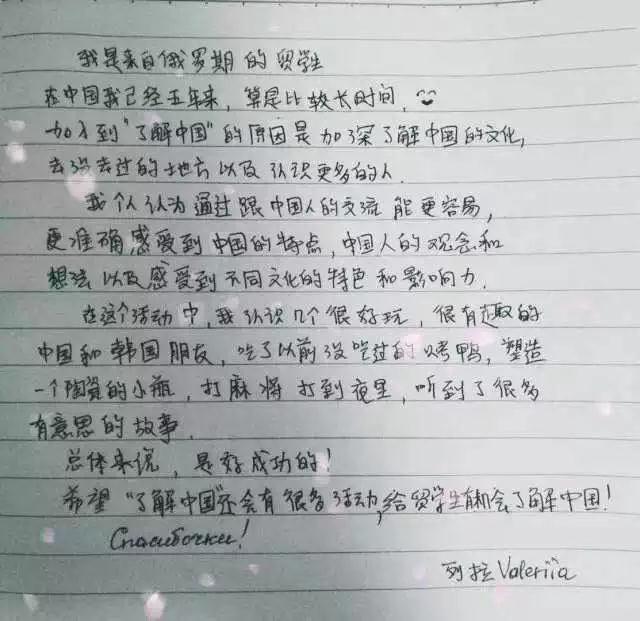 我是来自俄罗期的贸学生
在中国我已经五年来，算是比较长时间.
加入到"了解中国"的原因是加深了解中国的文化,
去没去过的地方以及认识更多的人.
我个人认为通过跟中国人的交流能更容易,
更准确感受到中国的特点,中国人的观念和
想法以及感受到不同文化的特色和影响力.
在这个活动中,我认识几个很好玩,很有趣的
中国和韩国朋友,吃了以前没吃过的烤鸭,塑造
一个陶瓷的小瓶,打麻将打到夜里,听到了很多
有意思的故事.
总体来说,是好成功的!
希望"了解中国"还会有很多活动,给贸学生有机会了解中国!
Спасибочки!
列拉Valeriia